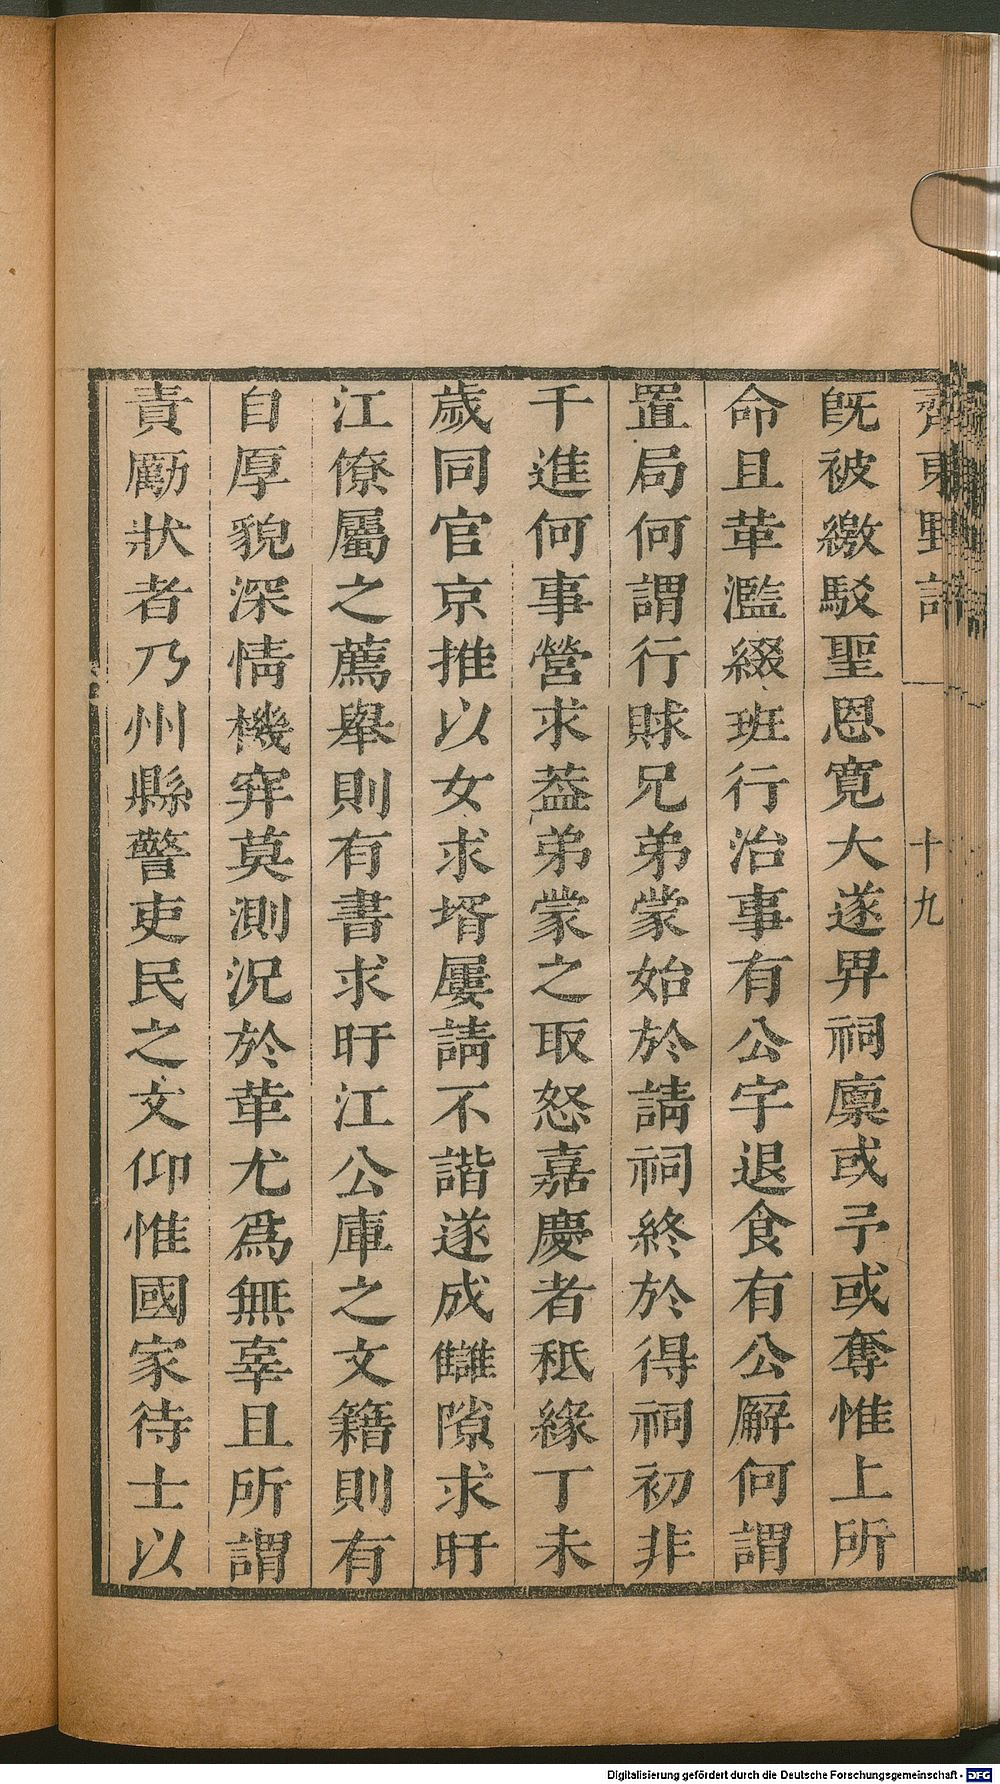 齊東野語
十九
旣被繳駁聖恩寛大遂畀祠廪或予或奪惟上所
命且華濫綴班行治事有公宇退食有公廨何謂
置局何謂行賕兄弟蒙始於請祠終於得祠初非
千進何事營求葢弟蒙之取怒嘉慶者秪緣丁未
歲同官京推以女求壻屢請不諧遂成讎隙求盱
江僚屬之薦舉則有書求盱江公庫之文籍則有
自厚貌深情機穽莫測况於華尤爲無辜且所謂
責勵狀者乃州縣警吏民之文仰惟國家待士以
Digitalisierung gefördert durch die Deutsche Forschungsgemeinschaft - DFG